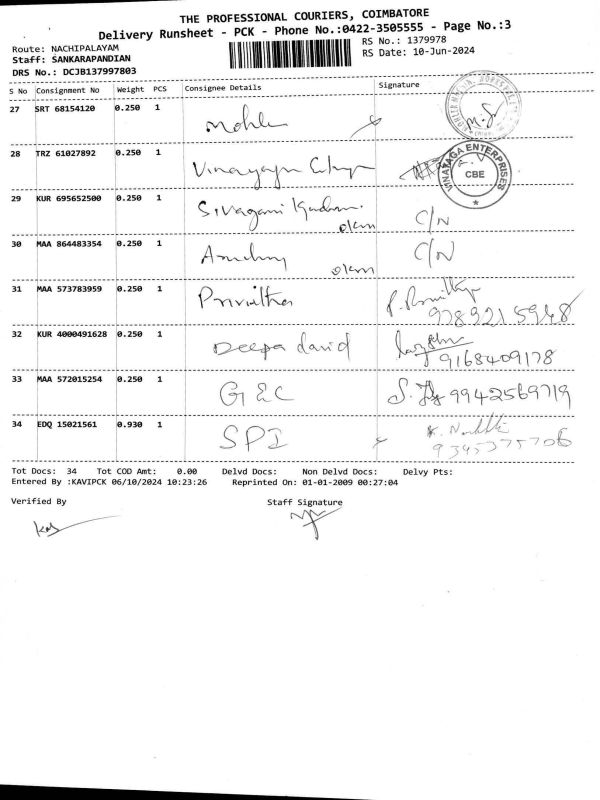 THE PROFESSIONAL COURIERS, COIMBATORE
Delivery Runsheet - PCK - Phone No.:0422-3505555 - Page No.:3
Route: NACHIPALAYAM
RS No.: 1379978
Staff: SANKARAPANDIAN
RS Date: 10-Jun-2024
DRS No.: DCJB137997803
S No Consignment No Weight PCS Consignee Details Signature
27 SRT 68154120 0.250 1
28 TRZ 61027892 0.250 1 Vinayaga
VINAYAGA ENTERPRISES
CBE
29 KUR 695652500 0.250 1 C/N
30 MAA 864483354 0.250 1 C/N
31 MAA 573783959 0.250 1
32 KUR 4000491628 0.250 1 Deepa david
9168409178
33 MAA 572015254 0.250 1 G&C S. 9942569719
34 EDQ 15021561 0.930 1 SPI
9345375706
Tot Docs: 34 Tot COD Amt: 0.00 Delvd Docs: Non Delvd Docs: Delvy Pts:
Entered By :KAVIPCK 06/10/2024 10:23:26 Reprinted On: 01-01-2009 00:27:04
Verified By Staff Signature